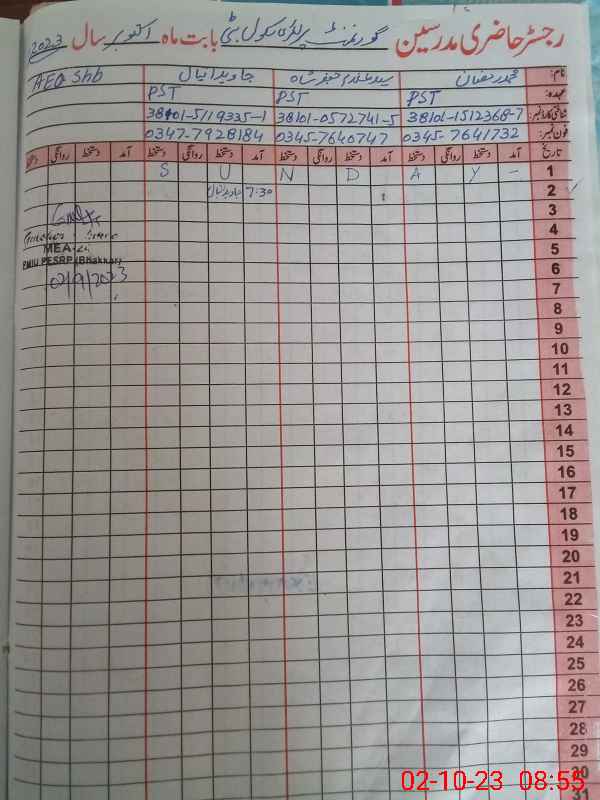 رجسٹر حاضری مدرسین گورنمنٹ پرائمری سکول بٹی بابت ماہ اکتوبر سال 2023
نام: محمد رمضان جاوید دانیال AEO Shb
عہدہ: PST PST PST
شناختی کارڈ نمبر 38101-1512368-7 38101-0572741-5 38101-5119335-1
فون نمبر: 0345-7641732 0345-7640747 0347-7928184
تاریخ آمد دستخط روانگی دستخط آمد دستخط روانگی دستخط آمد دستخط روانگی دستخط آمد دستخط روانگی
1 S U N D A Y -
2 7:30
3
4
5 MEA
6 PMIU PESRP (Bhakkar)
7 02/9/2023
8
9
10
11
12
13
14
15
16
17
18
19
20
21
22
23
24
25
26
27
28
29
30
31
02-10-23 08:55